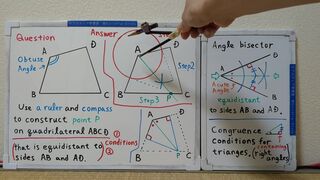 Question
A
D
Obtuse
Angle
B
C
Use a ruler and compass
to construct point P
on quadrilateral ABCD
that is equidistant to
sides AB and AD.
① ② conditions
Answer
A
D
Step2
B
Step3
P
C
A
D
B
P
C
Angle bisector
A
B
D
Acute
Angle
equidistant
to sides AB and AD.
Congruence
conditions for
triangles. (right
angles)